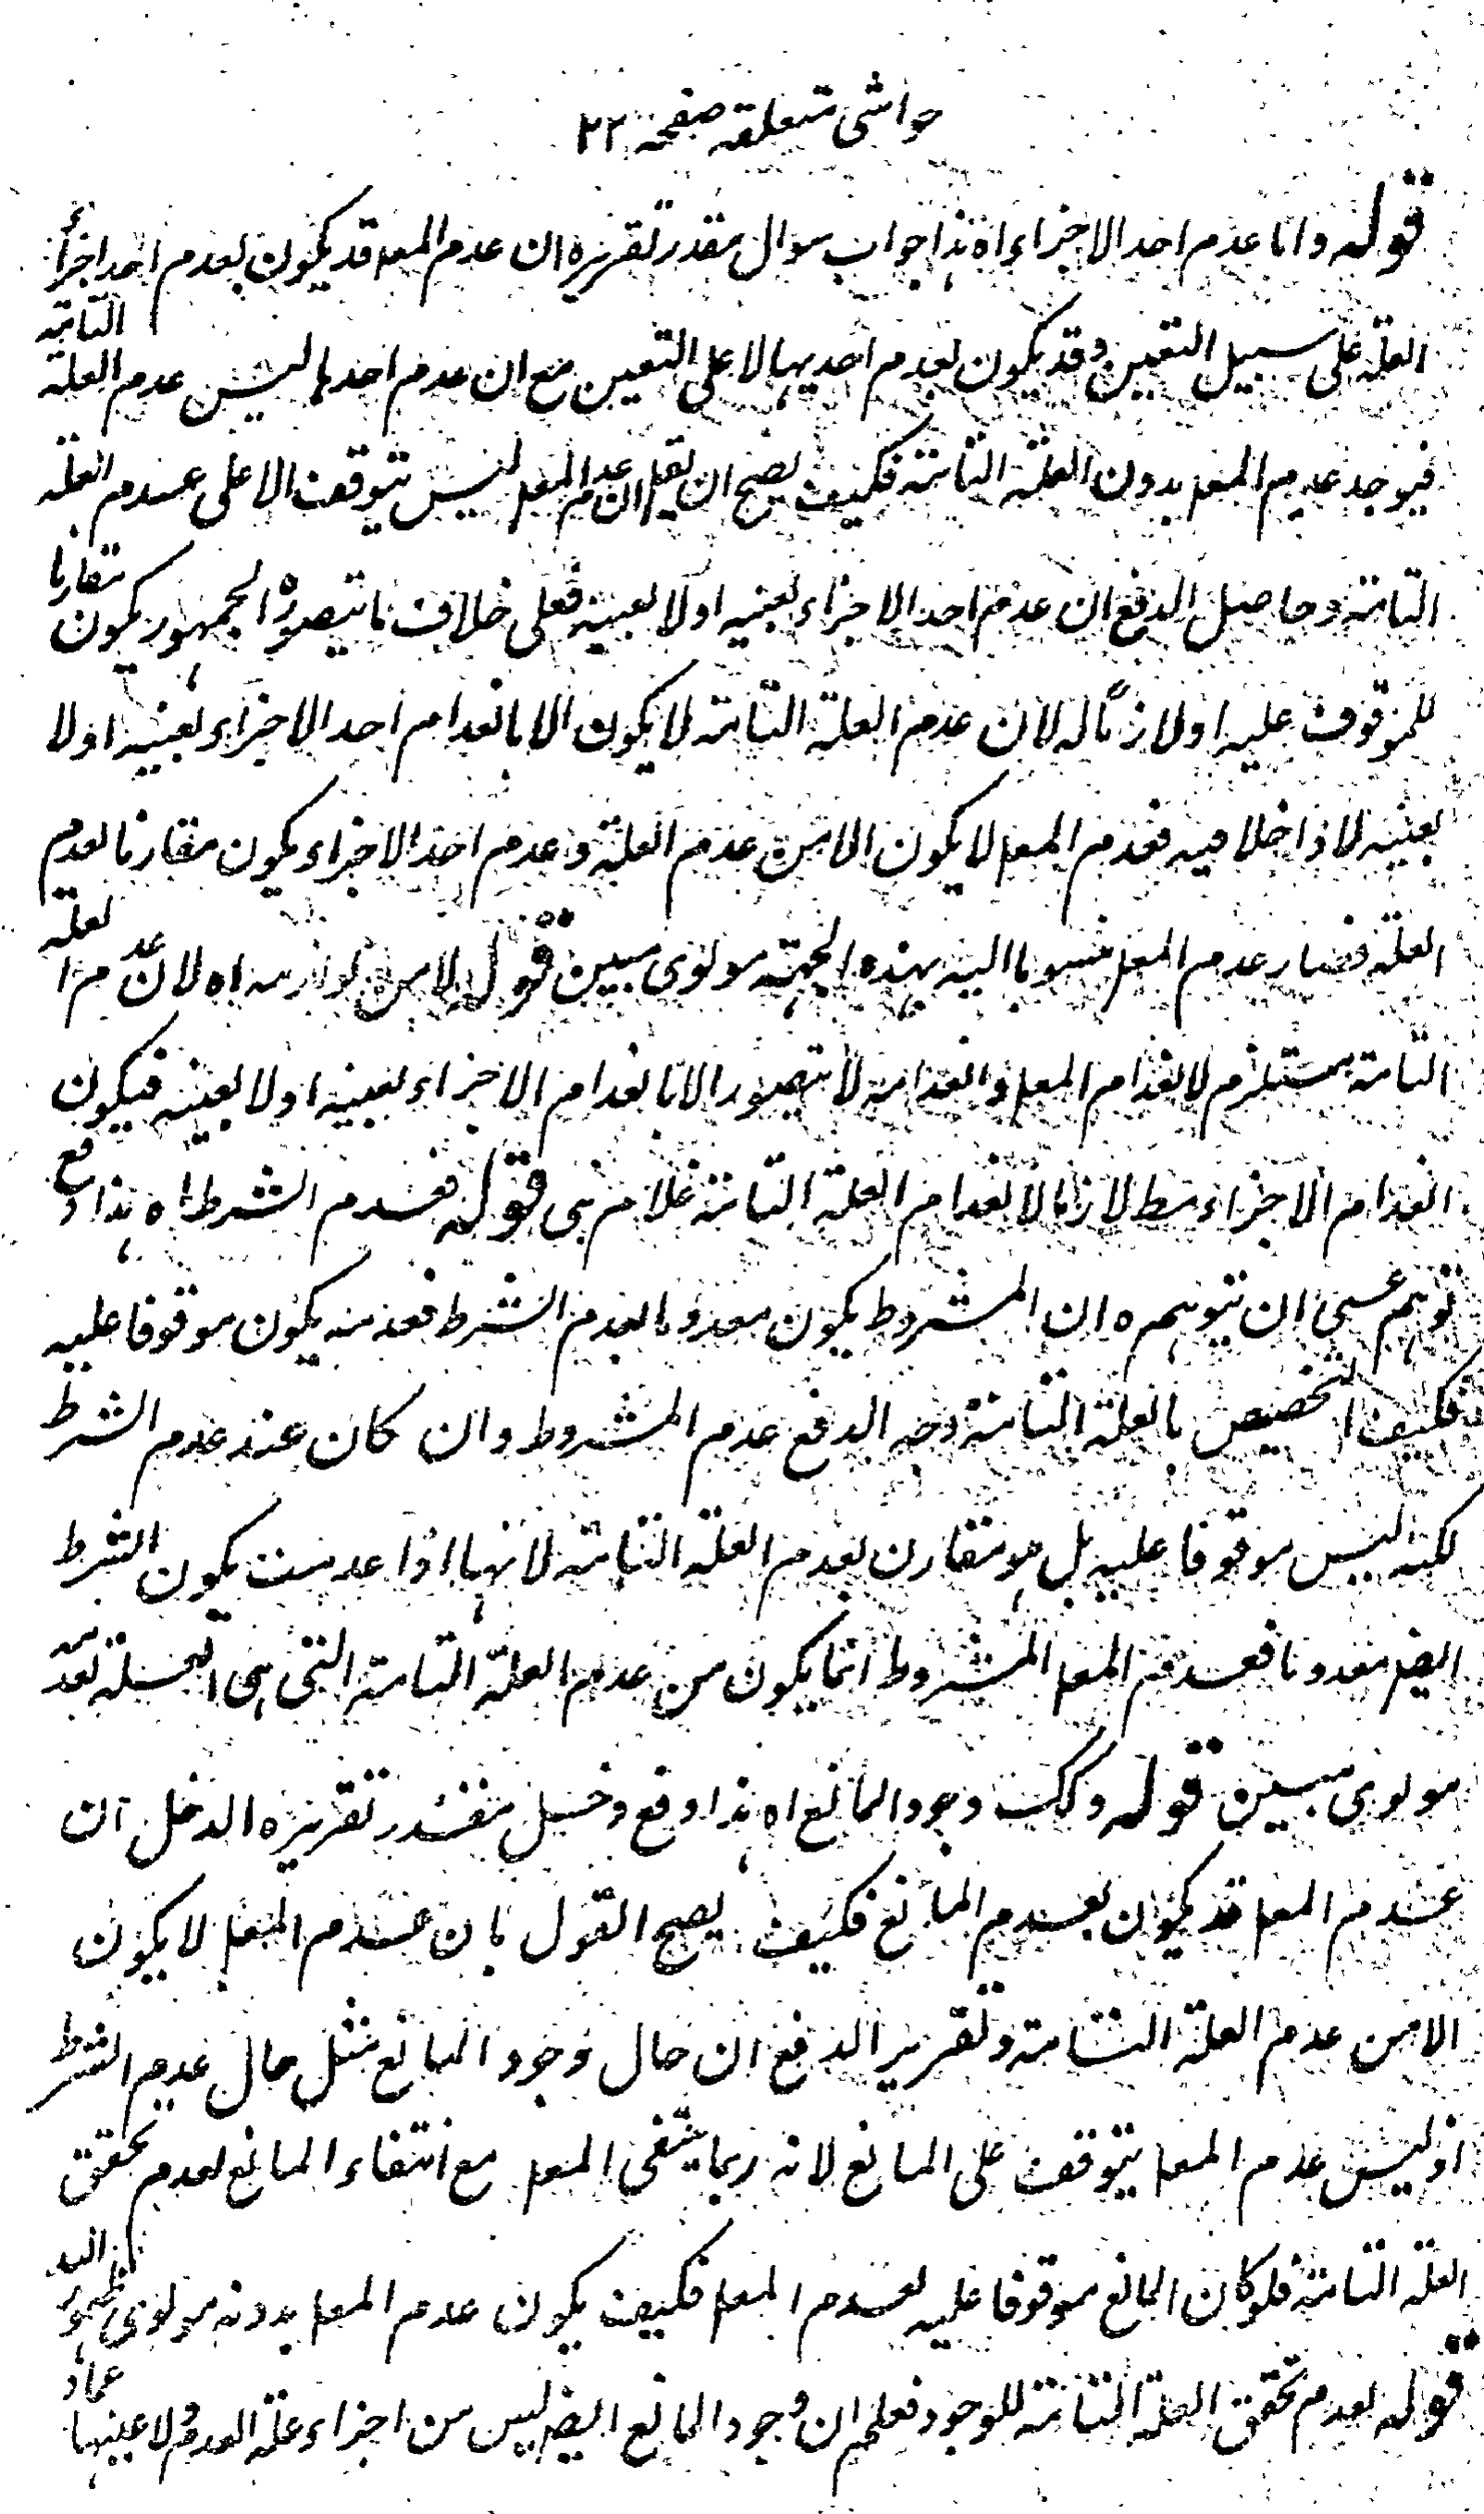 حواشی متعلقہ صفحہ ٢٢
قوله واما عدم احد الاجزاء اه هذا جواب سوال مقدر تقريره ان عدم المعلـ قد يكون بعدم احد اجزاء
العلة على سبيل التعيين وقد يكون بعدم احديها لا على التعيين مع ان عدم احدها ليس عدم العلة التامة
فيوجد عدم المعلـ بدون العلة التامة فكيف يصح ان يقـ ان عدم المعلـ ليس يتوقف الا على عدم العلة
التامة وحاصل الدفع ان عدم احد الاجزاء بعينه اولا بعينه فعلى خلاف ما يتصوره الجمهور يكون مقارنا
للموقوف عليه اولازماً له لان عدم العلة التامة لا يكون الا بانعدام احد الاجزاء بعينه اولا
بعينه لا داخلا فيه فعدم المعلـ لا يكون الا من عدم العلة وعدم احد الاجزاء يكون مقارنا لعدم
العلة فصار عدم المعلـ منسوبا اليه بهذه الجهة مولوى مبين قوله او من لوازمه اه لان عدم العلة
التامة مستلزم لانعدام المعلـ وانعدامه لا يتصور الا بانعدام الاجزاء بعينه اولا بعينه فيكون
انعدام الاجزاء مطـ لازما لانعدام العلة التامة غلام نبى قوله فعدم الشرط اه هذا دفع
توهم عسى ان يتوهم ه ان المشروط يكون معدوما بعدم الشرط فعدمه يكون موقوفا عليه
فكيف التخصيص بالعلة التامة وجه الدفع عدم المشروط وان كان عند عدم الشرط
لكنه ليس موقوفا عليه بل هو مقارن لعدم العلة التامة لانها اذا عدمت يكون الشرط
ايضـ معدوما فعدم المعلـ المشروط انما يكون من عدم العلة التامة التى هى العلة لعدمه
مولوى مبين قوله وكك وجود المانع اه هذا دفع دخل مقدر تقريره الدخل ان
عدم المعلـ قد يكون بعدم المانع فكيف يصح القول بان عدم المعلـ لا يكون
الا من عدم العلة التامة وتقرير الدفع ان حال وجود المانع مثل حال عدم الشرط
اذ ليس عدم المعلـ يتوقف على المانع لانه ربما ينتفى المعلـ مع انتفاء المانع لعدم تحقق
العلة التامة فلو كان المانع موقوفا عليه لعدم المعلـ فكيف يكون عدم المعلـ بدونه مولوى ظهور الله
قوله لعدم تحقق العلة التامة للوجود فعلم ان وجود المانع ايضـ ليس من اجزاء علة العدم ولا عينها عماد